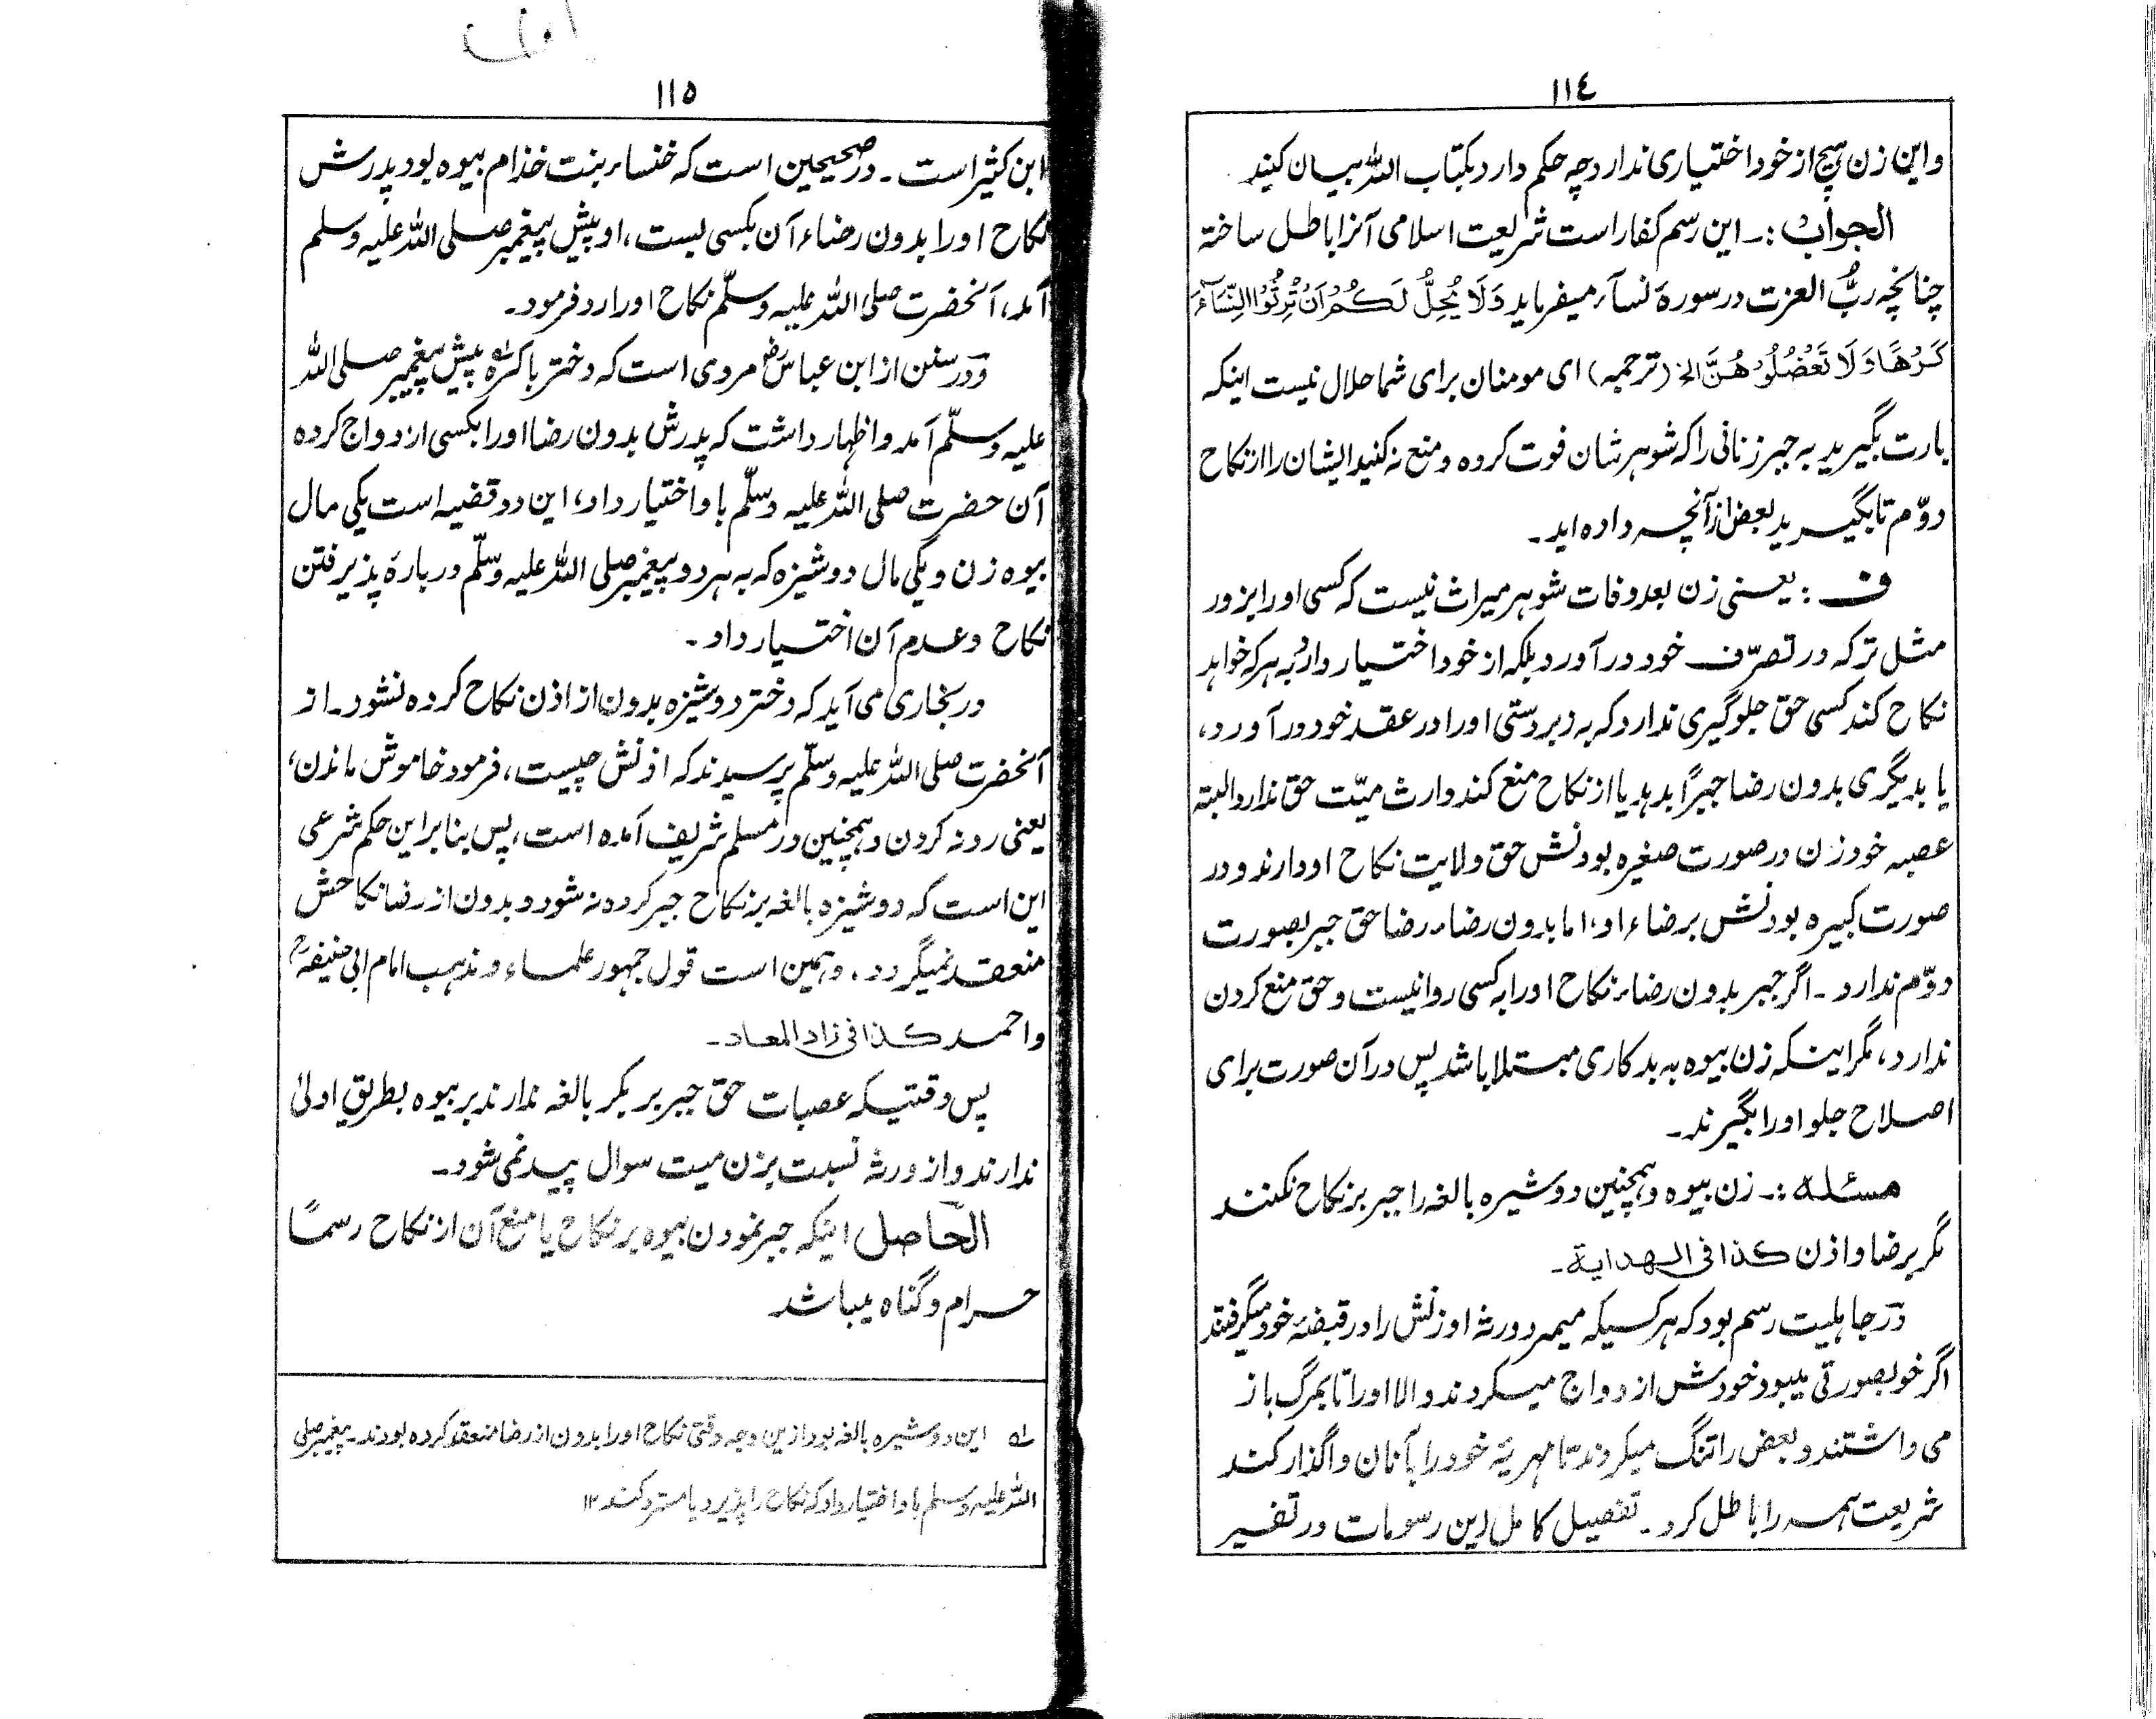 ١١٤
واین زن ہیچ از خود اختیاری ندارد چہ حکم دارد بکتاب اللہ بیان کیند
الجواب :۔ این رسم کفار است شریعت اسلامی آنرا باطل ساختہ
چنانچہ ربُّ العزت در سورہ نسآء میفرماید وَلَا یُحِلُّ لَکُمْ اَنْ تَرِثُوا النِّسَآءَ
کَرْھًا وَلَا تَعْضُلُوْ ھُنَّ الخ (ترجمہ) ای مومنان برای شما حلال نیست اینکہ
بارت بگیرید بہ جبر زنانی را کہ شوہر شان فوت کردہ و منع نہ کنید ایشان را از نکاح
دوّم تا بگیرید بعض از آنچہ دادہ اید۔
ف : یعنی زن بعد وفات شوہر میراث نیست کہ کسی او را بزور
مثل ترکہ در تصرّف خود در آورد بلکہ از خود اختیار دارد بہ ہر کہ خواہد
نکاح کند کسی حق جلوگیری ندارد کہ بہ زبردستی او را در عقد خود در آورد،
یا بدیگری بدون رضا جبراً بدہد یا از نکاح منع کند وارث میّت حق ندارد البتہ
عصبہ خود زن در صورت صغیرہ بودنش حق ولایت نکاح او دارند و در
صورت کبیرہ بودنش برضاء او، اما بدون رضاء رضا حق جبر بصورت
دوّم ندارد ۔ اگر جبر بدون رضاء نکاح او را بہ کسی روا نیست و حق منع کردن
ندارد، مگر اینکہ زن بیوہ بہ بدکاری مبتلا باشد پس در آن صورت برای
اصلاح جلو او را بگیرند۔
مسئلہ :۔ زن بیوہ و ہمچنین دوشیرہ بالغہ را جبر بر نکاح نکنند
مگر برضا و اذن کذا فی الھدایة۔
در جاہلیت رسم بود کہ ہر کسیکہ میمرد ورثہ او زنش را در قبضہٴ خود میگرفتند
اگر خوبصورتی میبود خودش ازدواج میکردند و الا او را تا بمرگ باز
می داشتند و بعض را تنگ میکردند تا مہریہٴ خود را بآنان واگذار کند
شریعت ہمہ را باطل کرد۔ تفصیل کامل این رسومات در تفسیر
١١٥
ابن کثیر است ۔ در صحیحین است کہ خنساء بنت خذام بیوہ بود پدرش
نکاح او را بدون رضاء آن بکسی بست، او پیش پیغمبر صلی اللہ علیہ وسلم
آمد، آنحضرت صلی اللہ علیہ وسلّم نکاح او را رد فرمود۔
ودر سنن از ابن عباسؓ مروی است کہ دختر باکرہ لہ پیش پیغمبر صلی اللہ
علیہ وسلّم آمد و اظہار داشت کہ پدرش بدون رضا او را بکسی ازدواج کردہ
آن حضرت صلی اللہ علیہ وسلّم باو اختیار داد، این دو قضیہ است یکی مال
بیوہ زن و یکی مال دوشیزہ کہ بہ ہر دو پیغمبر صلی اللہ علیہ وسلّم در بارہٴ پذیرفتن
نکاح و عدم آن اختیار داد ۔
در بخاری می آید کہ دختر دوشیزہ بدون از اذن نکاح کردہ نشود ۔ از
آنحضرت صلی اللہ علیہ وسلّم پرسیدند کہ اذنش چیست، فرمود خاموش ماندن،
یعنی رد نہ کردن و ہمچنین در مسلم شریف آمدہ است، پس بنا براین حکم شرعی
این است کہ دوشیزہ بالغہ بر نکاح جبر کردہ نہ شود و بدون از رضا نکاحش
منعقد نمیگردد، و ہمین است قول جمہور علماء و مذہب امام ابی حنیفہؒ
واحمد کذا فی زاد المعاد۔
پس وقتیکہ عصبات حق جبر بر بکر بالغہ ندارند بر بیوہ بطریق اولیٰ
ندارند و از ورثہ نسبت بزن میت سوال پیدا نمی شود۔
الحاصل اینکہ جبر نمودن بیوہ بر نکاح یا منع آن از نکاح رسمًا
حرام و گناہ یمباشد
لہ این دوشیرہ بالغہ بود ازین وجہ وقتی نکاح او را بدون از رضا منعقد کردہ بودند۔ پیغمبر صلی
اللہ علیہ وسلم باو اختیار داد کہ نکاح را بپذیرد یا مسترد کند ١٢